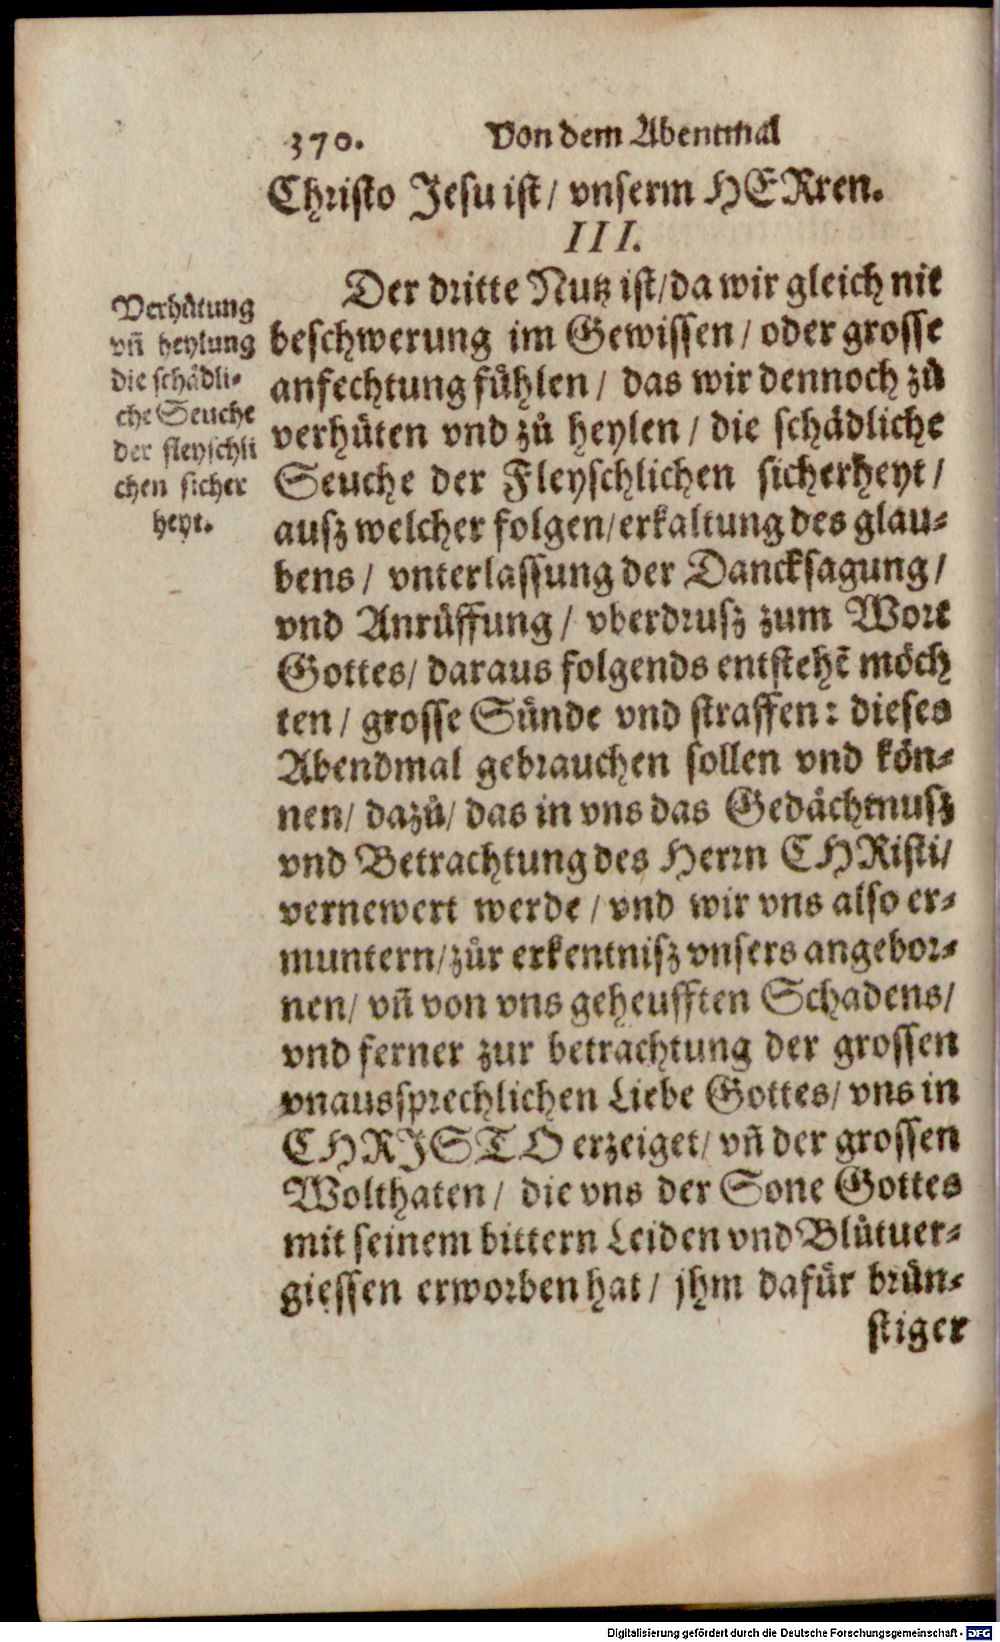 370. Von dem Abentmal
Christo Jesu ist/ vnserm HERren.
III.
Der dritte Nutz ist/ da wir gleich nit
beschwerung im Gewissen/ oder grosse
anfechtung fühlen/ das wir dennoch zů
verhüten vnd zů heylen/ die schädliche
Seuche der Fleyschlichen sicherheyt/
ausz welcher folgen/ erkaltung des glau-
bens/ vnterlassung der Dancksagung/
vnd Anrüffung/ vberdrusz zum Wort
Gottes/ daraus folgends entstehẽ möch
ten/ grosse Sünde vnd straffen: dieses
Abendmal gebrauchen sollen vnd kön-
nen/ dazů/ das in vns das Gedächtnusz
vnd Betrachtung des Herrn CHRisti/
vernewert werde/ vnd wir vns also er-
muntern/ zůr erkentnisz vnsers angebor-
nen/ vñ von vns geheufften Schadens/
vnd ferner zur betrachtung der grossen
vnaussprechlichen Liebe Gottes/ vns in
CHRISTO erzeiget/ vñ der grossen
Wolthaten/ die vns der Sone Gottes
mit seinem bittern Leiden vnd Blůtuer-
giessen erworben hat/ jhm dafür brün-
stiger
Verhütung
vñ heylung
die schädli-
che Seuche
der fleyschli
chen sicher
heyt.
Digitalisierung gefördert durch die Deutsche Forschungsgemeinschaft - DFG